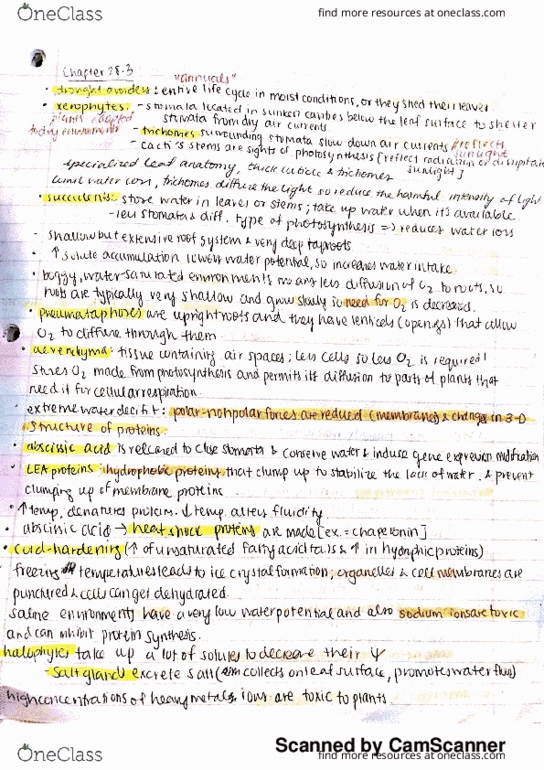 OneClass
find more resources at oneclass.com
Chapter 28.3
"annuals"
• drought avoiders: entire life cycle in moist conditions, or they shed their leaves
• xerophytes: - stomata located in sunken cavities below the leaf surface to shelter
plants adapted to dry environments
stomata from dry air currents
- trichomes surrounding stomata slow down air currents reflects sunlight
- cacti's stems are sights of photosynthesis [reflect radiation or dissipate sunlight]
specialized leaf anatomy, thick cuticle & trichomes
limit water loss, trichomes diffuse the light so reduce the harmful intensity of light
• succulents: store water in leaves or stems; take up water when it's available
- less stomata & diff. type of photosynthesis => reduces water loss
- shallow but extensive root system & very deep taproots
• ↑ solute accumulation lowers water potential, so increases water intake
• boggy, water-saturated environments means less diffusion of O2 to roots, so
roots are typically very shallow and grow slowly so need for O2 is decreased.
• pneumataphores are upright roots and they have lenticels (openings) that allow
O2 to diffuse through them
• aerenchyma: tissue containing air spaces; less cells so less O2 is required!
stores O2 made from photosynthesis and permits its diffusion to parts of plants that
need it for cellular respiration.
• extreme water deficit: polar-nonpolar forces are reduced (membranes) & changes in 3-D
structure of proteins.
• abscissic acid is released to close stomata & conserve water & induce gene expression modification
• LEA proteins: hydrophobic proteins that clump up to stabilize the lack of water & prevent
clumping up of membrane proteins
• ↑ temp, denatures proteins. ↓ temp. alters fluidity
• abscissic acid → heat shock proteins are made [ex. = chaperonin]
• cold-hardening (↑ of unsaturated fatty acid tails & ↑ in hydrophilic proteins)
freezing temperatures leads to ice crystal formation; organelles & cell membranes are
punctured & cells can get dehydrated.
saline environments have a very low water potential and also sodium ions are toxic
and can inhibit protein synthesis.
halophytes take up a lot of solutes to decrease their Ψ
- salt glands excrete salt (collects on leaf surface, promotes water flow)
high concentrations of heavy metals ions are toxic to plants.
Scanned by CamScanner
OneClass
find more resources at oneclass.com